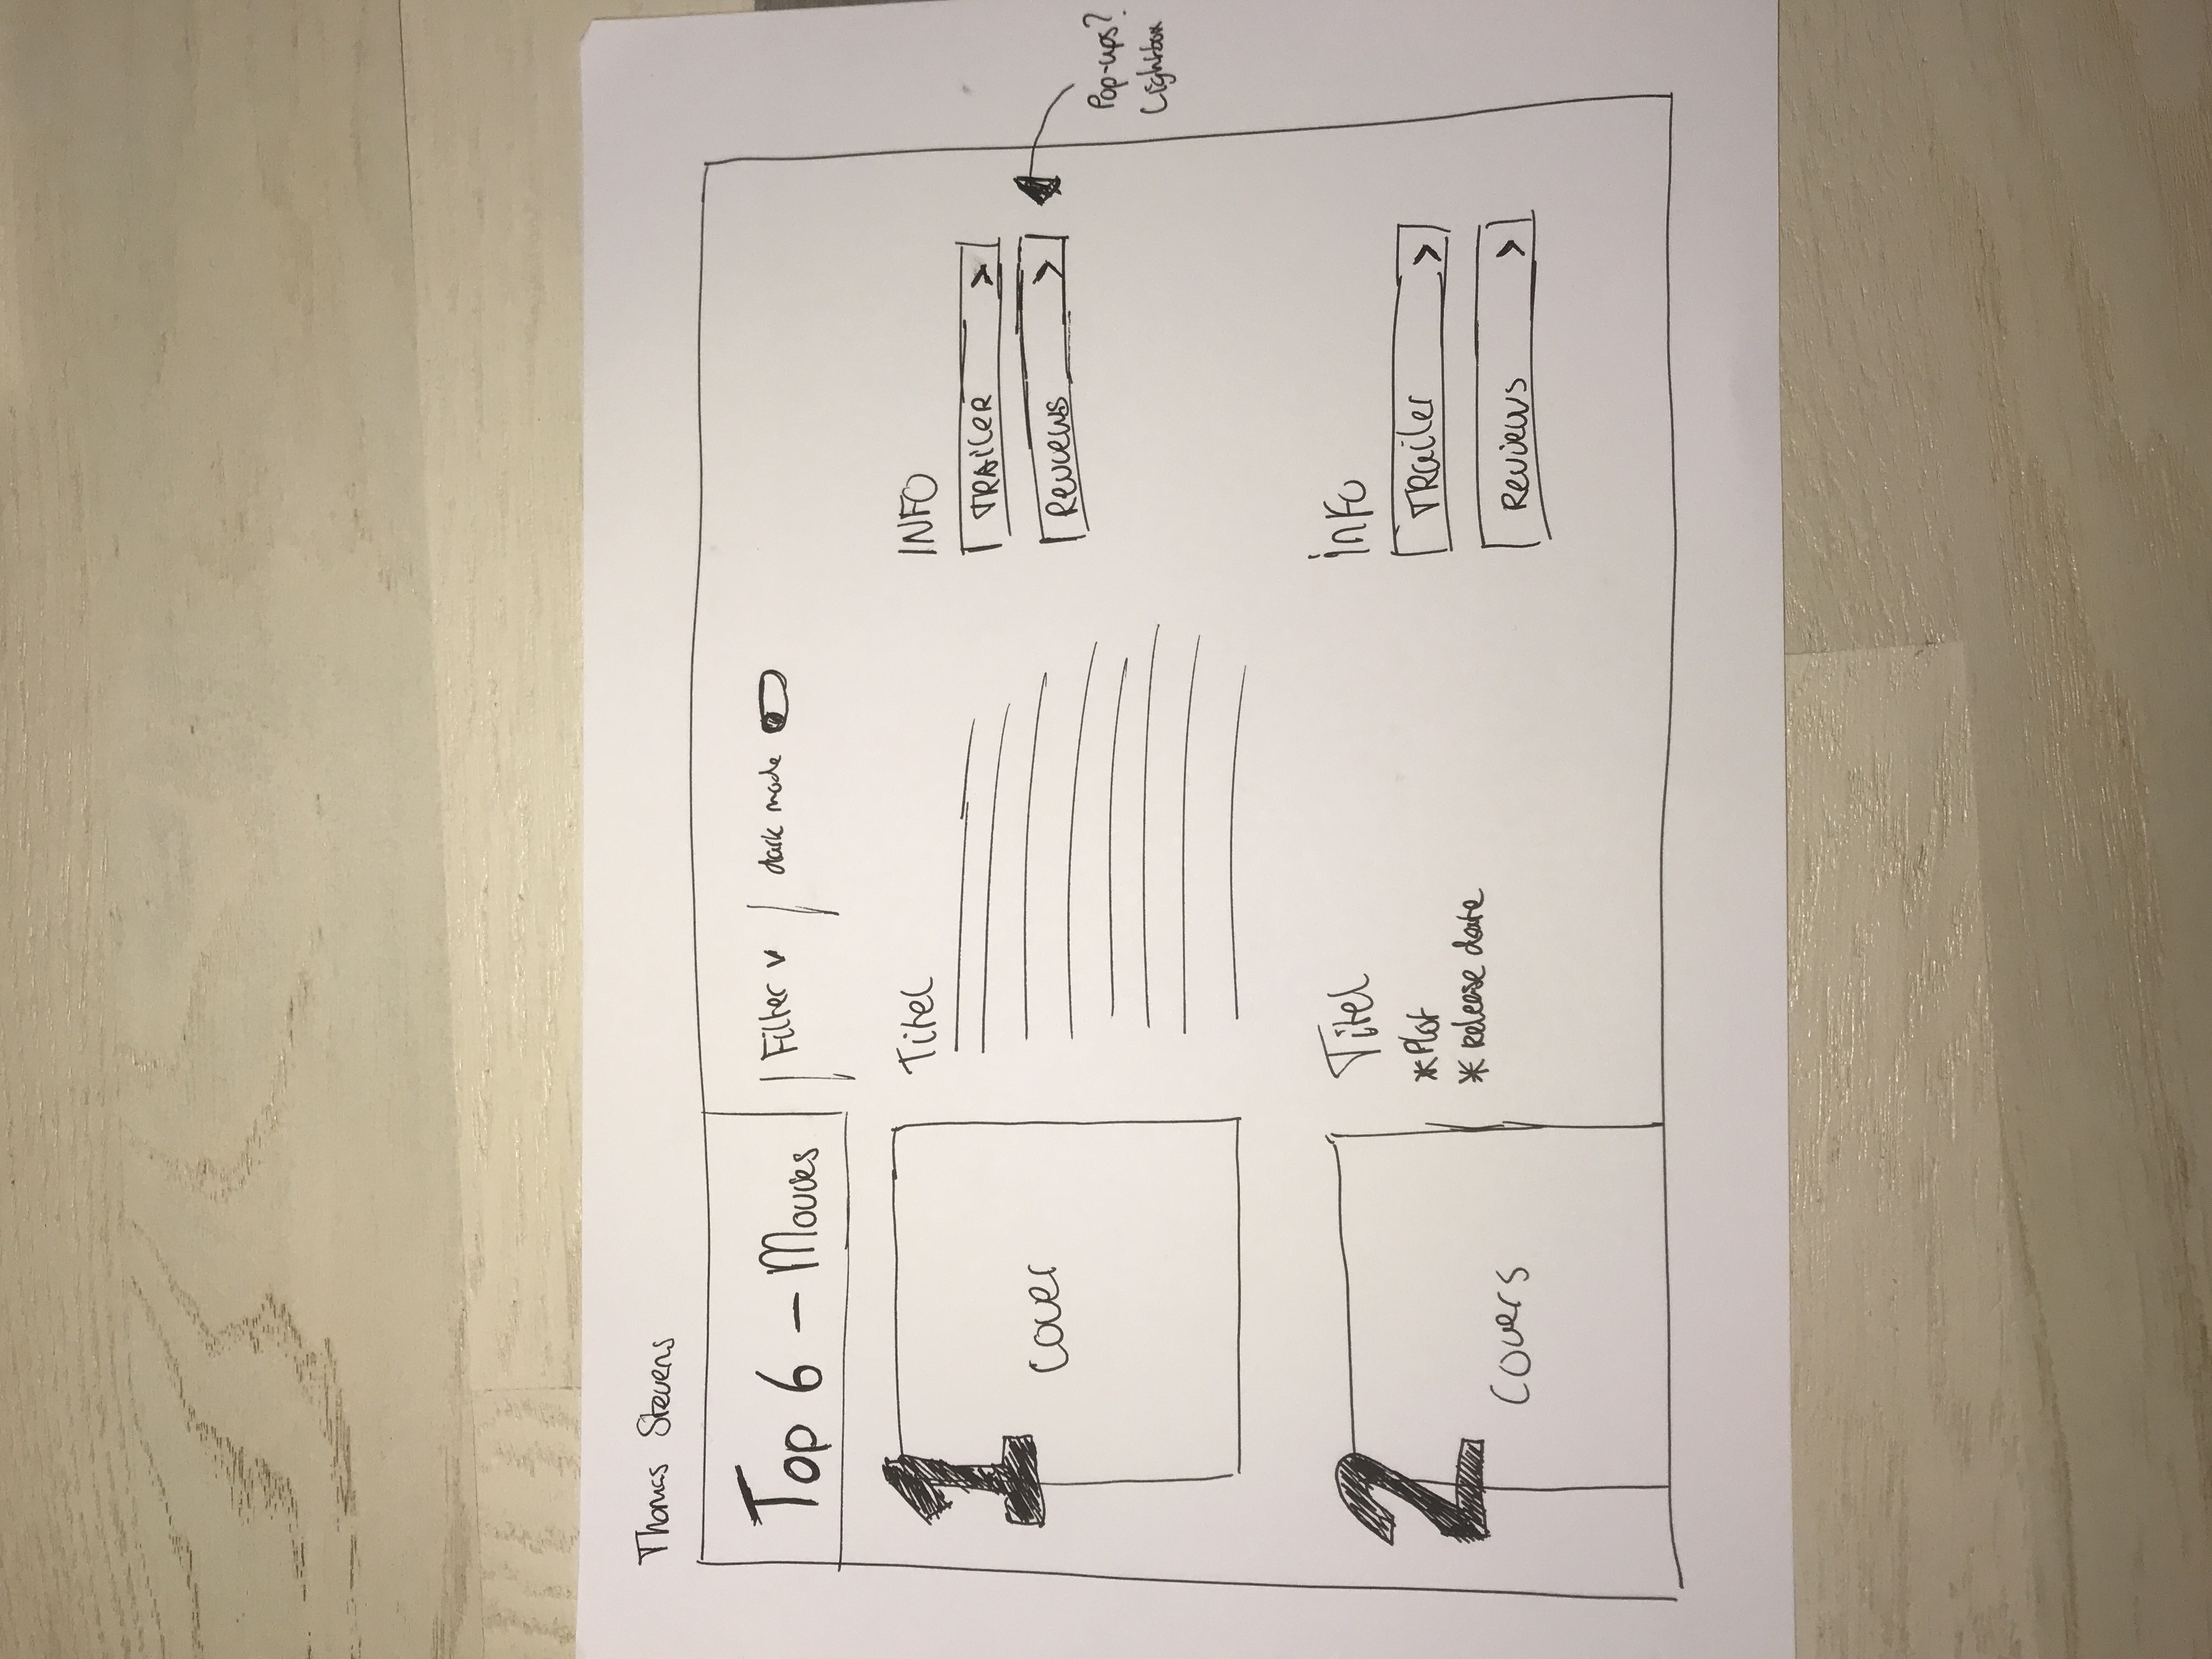 Thomas Stevens
Top 6 - Movies
Filter v
dark mode
1
Cover
Titel
INFO
TRAILER >
Reviews >
Pop-ups?
Lightbox
2
Covers
Titel
* Plot
* release date
info
TRailer >
Reviews >